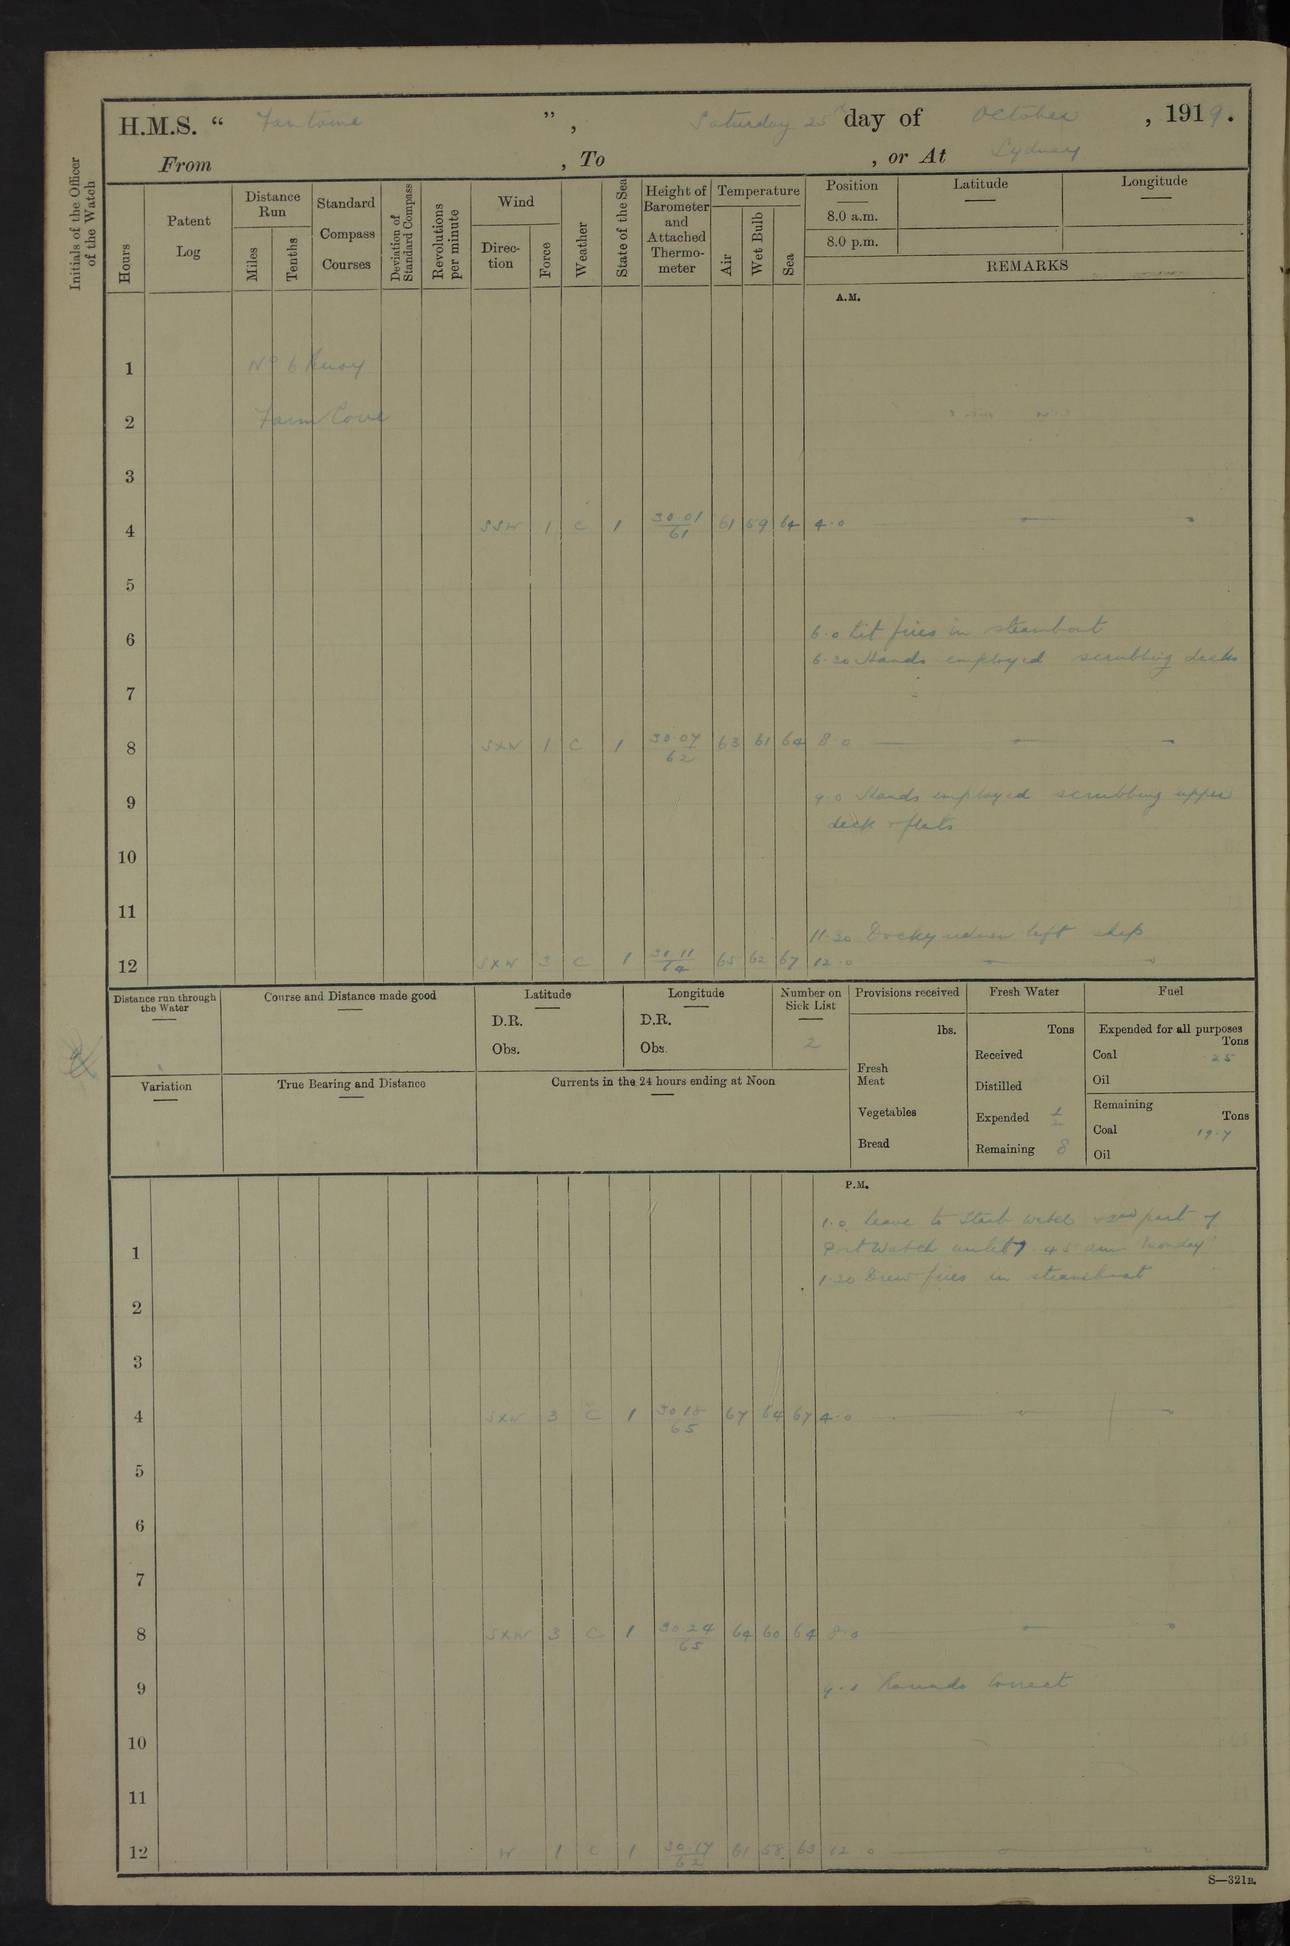 H.M.S. “ Fantome ”, Saturday 25th day of October, 1919.
From , To , or At Sydney
Initials of the Officer of the Watch
Hours
Patent Log
Distance Run
Miles
Tenths
Standard Compass Courses
Deviation of Standard Compass
Revolutions per minute
Wind
Direction
Force
Weather
State of the Sea
Height of Barometer and Attached Thermometer
Temperature
Air
Wet Bulb
Sea
Position Latitude Longitude
8.0 a.m.
8.0 p.m.
REMARKS
A.M.
1 No 6 Buoy
2 Farm Cove
3
4 SSW 1 C 1 30.01/61 61 59 64 4.0
5
6 6.0 Lit fires in steamboat
6.30 Hands employed scrubbing decks
7
8 SxW 1 C 1 30.07/62 63 61 64 8.0
9 9.0 Hands employed scrubbing upper
deck & flats
10
11
11.30 Dockyardmen left ship
12 SxW 3 C 1 30.11/64 65 62 67 12.0
Distance run through the Water
Course and Distance made good
Latitude
D.R.
Obs.
Longitude
D.R.
Obs.
Number on Sick List
2
Provisions received
lbs.
Fresh Meat
Vegetables
Bread
Fresh Water
Tons
Received
Distilled
Expended 1/2
Remaining 8
Fuel
Expended for all purposes
Tons
Coal .25
Oil
Remaining
Tons
Coal 19.7
Oil
Variation
True Bearing and Distance
Currents in the 24 hours ending at Noon
P.M.
1.0 Leave to Starb Watch & 2nd part of
1 Port Watch until 7.45 am Monday
1.30 Drew fires in steamboat
2
3
4 SxW 3 C 1 30.18/65 67 64 67 4.0
5
6
7
8 SxW 3 C 1 30.24/65 64 60 64 8.0
9 9.0 Rounds Correct
10
11
12 W 1 C 1 30.17/62 61 58 63 12.0
S—321B.